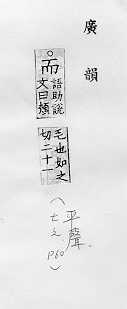 廣韻
○而
語助說
文曰頰
毛也如之
切二十一
(平聲.
七之 P60)